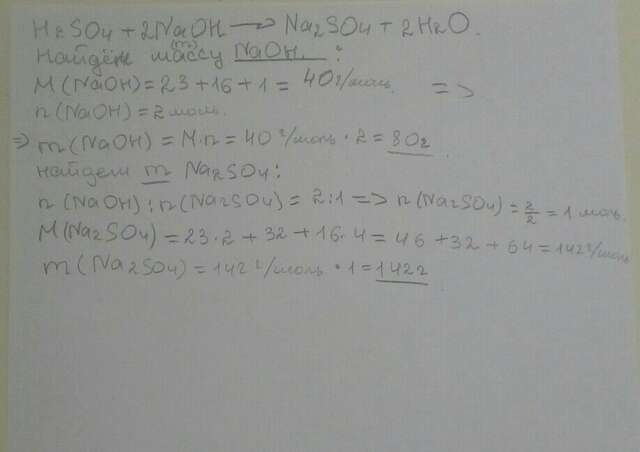 H₂SO₄ + 2NaOH → Na₂SO₄ + 2H₂O.
Найдём массу (m) NaOH. :
M(NaOH) = 23 + 16 + 1 = 40 г/моль. =>
n(NaOH) = 2 моль.
=> m(NaOH) = M·n = 40 г/моль · 2 = 80г
найдем m Na₂SO₄:
n(NaOH) : n(Na₂SO₄) = 2:1 => n(Na₂SO₄) = 2/2 = 1 моль.
M(Na₂SO₄) = 23·2 + 32 + 16·4 = 46 + 32 + 64 = 142 г/моль
m(Na₂SO₄) = 142 г/моль · 1 = 142г